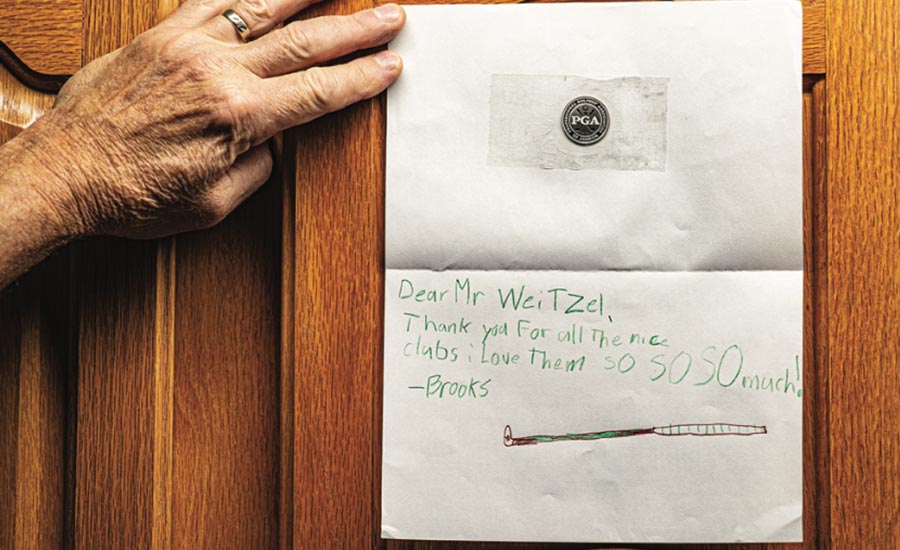 PGA
Dear Mr WeiTZel,
Thank you For all The nice
clubs i Love Them so SO SO much!
-Brooks